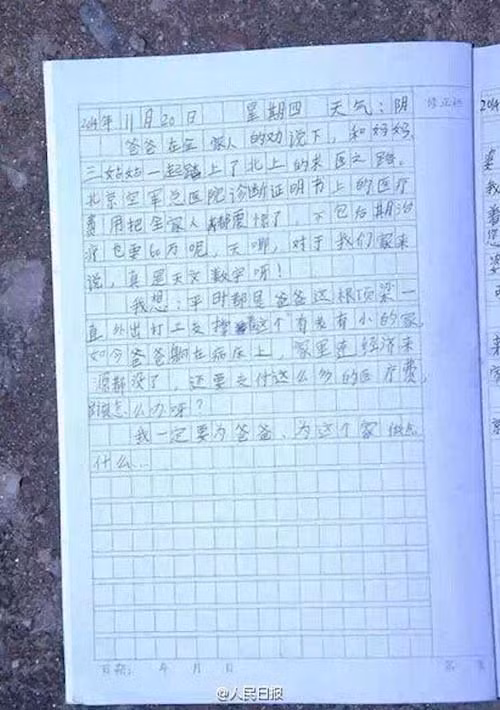 2014年 11月 20日 星期四 天气:阴
修正栏
爸爸在全家人的劝说下,和妈妈、
三姑姑一起踏上了北上的求医之路。
北京空军总医院诊断证明书上的医疗
费用把全家人都震惊了,不包后期治
疗也要60万呢,天哪,对于我们家来
说,真是天文数字呀!
我想:平时都是爸爸这根顶梁一
直外出打工支撑着这个有老有小的家,
如今爸爸躺在病床上,家里连经济来
源都没了,还要支付这么多的医疗费,
该怎么办呀?
我一定要为爸爸、为这个家做点
什么…
日期: 年 月 日
第 页
@人民日报